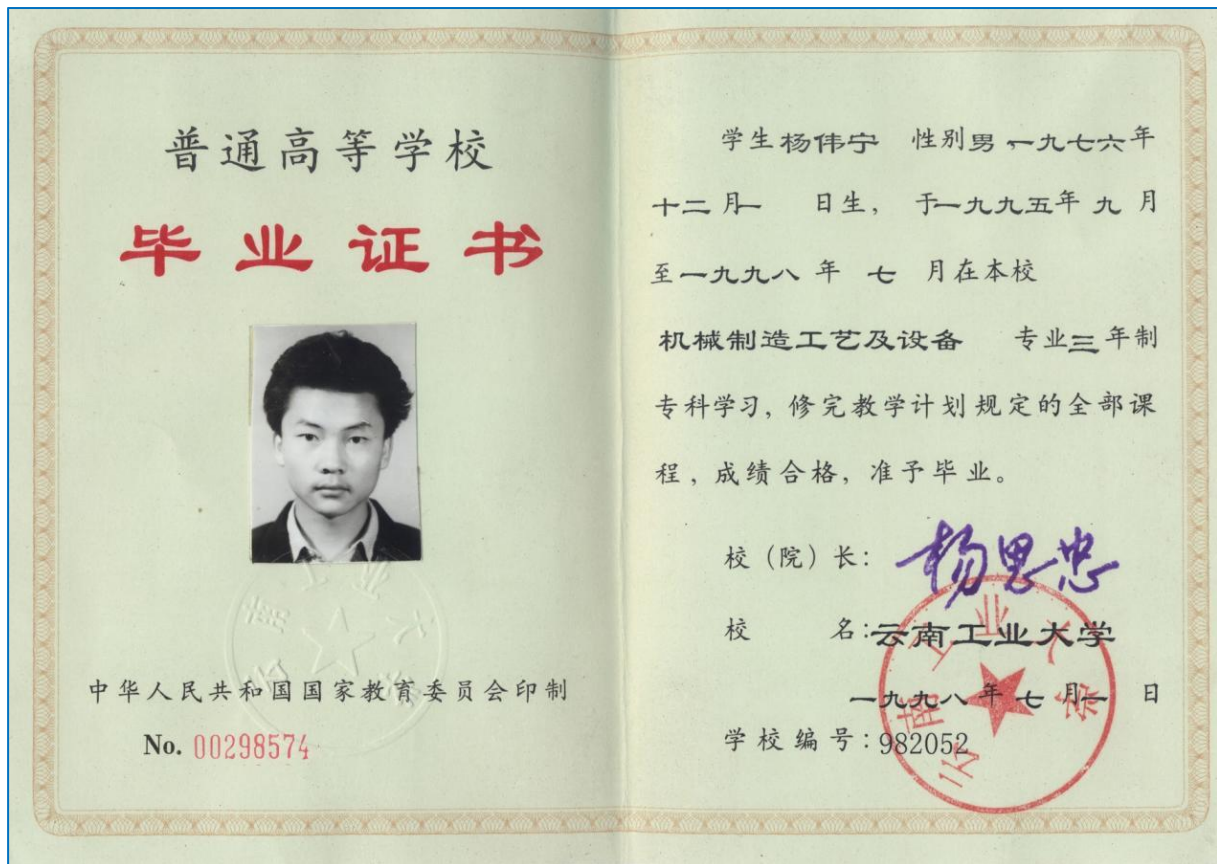 普通高等学校
毕业证书
云南工业大学
中华人民共和国国家教育委员会印制
No. 00298574
学生杨伟宁 性别男 一九七六年
十二月一 日生, 于一九九五年 九 月
至一九九八 年 七 月在本校
机械制造工艺及设备 专业三年制
专科学习, 修完教学计划规定的全部课
程, 成绩合格, 准予毕业。
校 (院) 长: 杨思忠
校 名:云南工业大学
一九九八 年 七 月一 日
学校编号:982052
云南工业大学